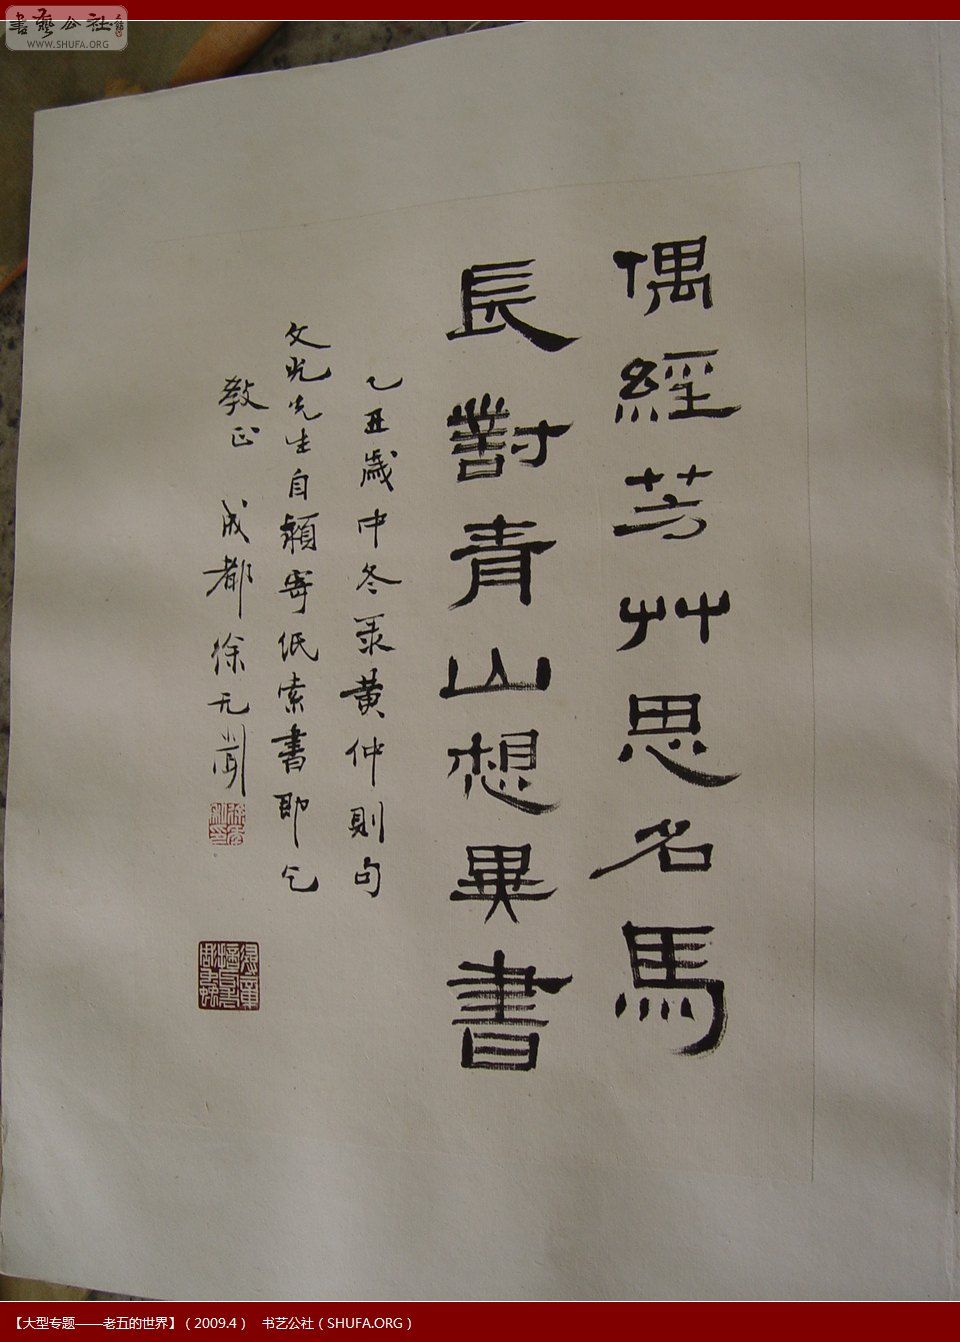 書藝公社
WWW.SHUFA.ORG
偶經芳艸思名馬
長對青山想異書
乙丑歲中冬录黄仲則句
文光先生自穎寄紙索書即乞
教正 成都徐无聞
【大型专题——老五的世界】（2009.4） 书艺公社（SHUFA.ORG）